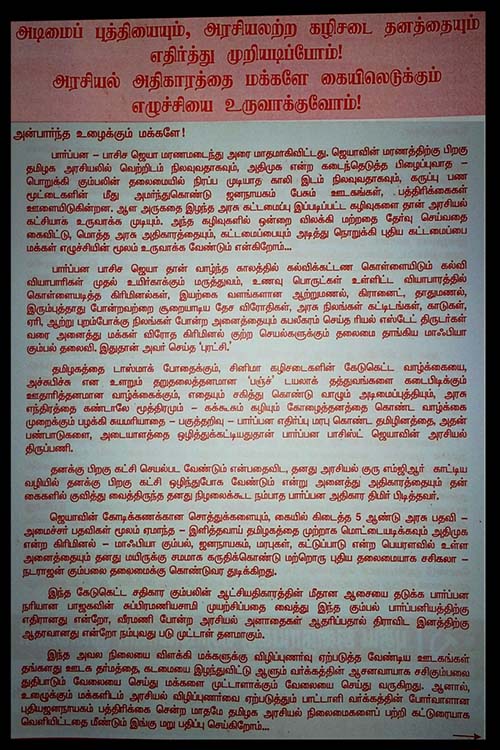 அடிமைப் புத்தியையும், அரசியலற்ற கழிசடை தனத்தையும்
எதிர்த்து முறியடிப்போம்!
அரசியல் அதிகாரத்தை மக்களே கையிலெடுக்கும்
எழுச்சியை உருவாக்குவோம்!
அன்பார்ந்த உழைக்கும் மக்களே!
பார்ப்பன – பாசிச ஜெயா மரணமடைந்து அரை மாதமாகிவிட்டது. ஜெயாவின் மரணத்திற்கு பிறகு
தமிழக அரசியலில் வெற்றிடம் நிலவுவதாகவும், அதிமுக என்ற கடைந்தெடுத்த பிழைப்புவாத –
பொறுக்கி கும்பலின் தலைமையில் நிரப்ப முடியாத காலி இடம் நிலவுவதாகவும், கருப்பு பண
மூட்டைகளின் மீது அமர்ந்துகொண்டு ஜனநாயகம் பேசும் ஊடகங்கள், பத்திரிக்கைகள்
ஊளையிடுகின்றன. ஆள அருகதை இழந்த அரசு கட்டமைப்பு இப்படிப்பட்ட கழிவுகளை தான் அரசியல்
கட்சியாக உருவாக்க முடியும். அந்த கழிவுகளில் ஒன்றை விலக்கி மற்றதை தேர்வு செய்வதை
கைவிட்டு, மொத்த அரசு அதிகாரத்தையும், கட்டமைப்பையும் அடித்து நொறுக்கி புதிய கட்டமைப்பை
மக்கள் எழுச்சியின் மூலம் உருவாக்க வேண்டும் என்கிறோம்...
பார்ப்பன பாசிச ஜெயா தான் வாழ்ந்த காலத்தில் கல்விக்கட்டண கொள்ளையிடும் கல்வி
வியாபாரிகள் முதல் உயிர்காக்கும் மருத்துவம், உணவு பொருட்கள் உள்ளிட்ட வியாபாரத்தில்
கொள்ளையடித்த கிரிமினல்கள், இயற்கை வளங்களான ஆற்றுமணல், கிரானைட், தாதுமணல்,
இரும்புத்தாது போன்றவற்றை சூறையாடிய தேச விரோதிகள், அரசு நிலங்கள் கட்டிடங்கள், காடுகள்,
ஏரி, ஆற்று புறம்போக்கு நிலங்கள் போன்ற அனைத்தையும் கபலீகரம் செய்த ரியல் எஸ்டேட் திருடர்கள்
வரை அனைத்து மக்கள் விரோத கிரிமினல் குற்ற செயல்களுக்கும் தலைமை தாங்கிய மாஃபியா
கும்பல் தலைவி. இதுதான் அவர் செய்த 'புரட்சி.'
தமிழகத்தை டாஸ்மாக் போதைக்கும், சினிமா கழிசடைகளின் கேடுகெட்ட வாழ்க்கையை,
அச்சுபிச்சு என உளறும் தறுதலைத்தனமான 'பஞ்ச்' டயலாக் தத்துவங்களை கடைபிடிக்கும்
ஊதாரித்தனமான வாழ்க்கைக்கும், எதையும் சகித்து கொண்டு வாழும் அடிமைபுத்தியும், அரசு
எந்திரத்தை கண்டாலே மூத்திரமும் – கக்கூசும் கழியும் கோழைத்தனத்தை கொண்ட வாழ்க்கை
முறைக்கும் பழக்கி சுயமரியாதை – பகுத்தறிவு – பார்ப்பன எதிர்ப்பு மரபு கொண்ட தமிழினத்தை, அதன்
பண்பாடுகளை, அடையாளத்தை ஒழித்துக்கட்டியதுதான் பார்ப்பன பாசிஸ்ட் ஜெயாவின் அரசியல்
திருப்பணி.
தனக்கு பிறகு கட்சி செயல்பட வேண்டும் என்பதைவிட, தனது அரசியல் குரு எம்ஜிஆர் காட்டிய
வழியில் தனக்கு பிறகு கட்சி ஒழிந்துபோக வேண்டும் என்று அனைத்து அதிகாரத்தையும் தன்
கைகளில் குவித்து வைத்திருந்த தனது நிழலைக்கூட நம்பாத பார்ப்பன அதிகார திமிர் பிடித்தவர்.
ஜெயாவின் கோடிக்கணக்கான சொத்துக்களையும், கையில் கிடைத்த 5 ஆண்டு அரசு பதவி –
அமைச்சர் பதவிகள் மூலம் ஏமாந்த – இளித்தவாய் தமிழகத்தை முற்றாக மொட்டையடிக்கவும் அதிமுக
என்ற கிரிமினல் – மாஃபியா கும்பல், ஜனநாயகம், மரபுகள், கட்டுப்பாடு என்ற பெயரளவில் உள்ள
அனைத்தையும் தனது மயிருக்கு சமமாக கருதிக்கொண்டு மற்றொரு புதிய தலைமையாக சசிகலா –
நடராஜன் கும்பலை தலைமைக்கு கொண்டுவர துடிக்கிறது.
இந்த கேடுகெட்ட சதிகார கும்பலின் ஆட்சியதிகாரத்தின் மீதான ஆசையை தடுக்க பார்ப்பன
நரியான பாஜகவின் சுப்பிரமணியசாமி முயற்சிப்பதை வைத்து இந்த கும்பல் பார்ப்பனியத்திற்கு
எதிரானது என்றோ, வீரமணி போன்ற அரசியல் அனாதைகள் ஆதரிப்பதால் திராவிட இனத்திற்கு
ஆதரவானது என்றோ நம்புவது படு முட்டாள் தனமாகும்.
இந்த அவல நிலையை விளக்கி மக்களுக்கு விழிப்புணர்வு ஏற்படுத்த வேண்டிய ஊடகங்கள்
தங்களது ஊடக தர்மத்தை, கடமையை இழந்துவிட்டு ஆளும் வர்க்கத்தின் ஆசனவாயாக சசிகும்பலை
துதிபாடும் வேலையை செய்து மக்களை முட்டாளாக்கும் வேலையை செய்து வருகிறது. ஆனால்,
உழைக்கும் மக்களிடம் அரசியல் விழிப்புணர்வை ஏற்படுத்தும் பாட்டாளி வர்க்கத்தின் போர்வாளான
புதியஜனநாயகம் பத்திரிக்கை சென்ற மாதமே தமிழக அரசியல் நிலைமைகளைப் பற்றி கட்டுரையாக
வெளியிட்டதை மீண்டும் இங்கு மறு பதிப்பு செய்கிறோம்...